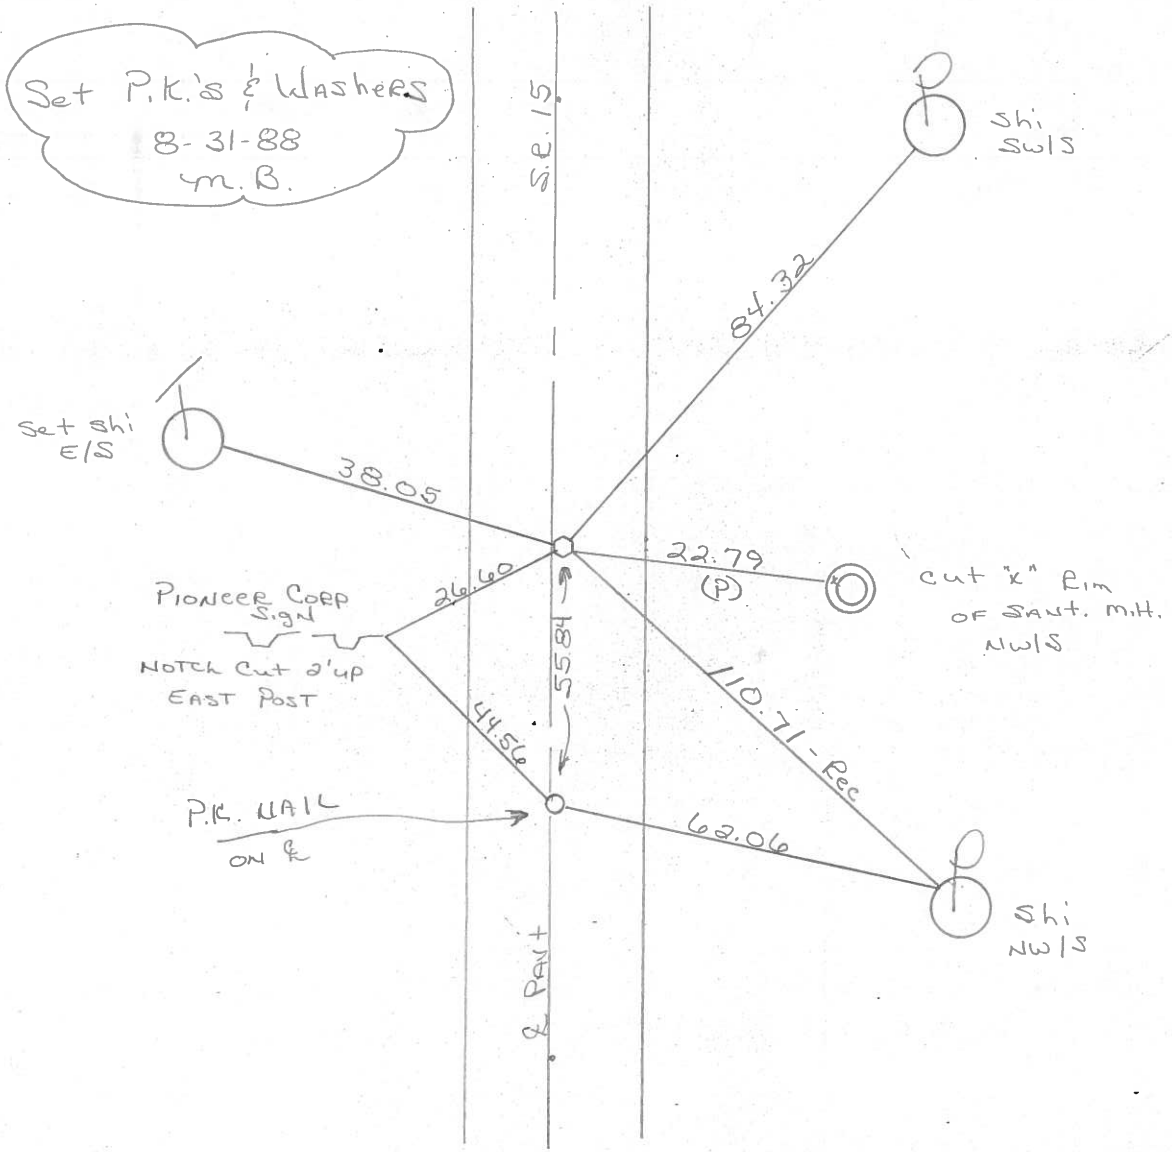 Set P.K.'s & Washers
8-31-88
M.B.
S.R. 15
Shi
SW/S
84.32
Set Shi
E/S
38.05
22.79
(P)
Cut "X" Rim
OF SANT. M.H.
NW/S
26.60
PIONEER CORP
SIGN
NOTCH Cut 2'up
EAST POST
55.84
110.71 - Rec
44.56
P.K. NAIL
ON ℄
62.06
Shi
NW/S
℄ PAVT